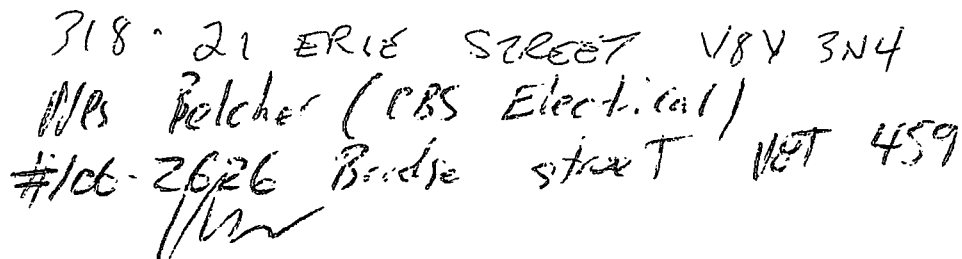 318 - 21 ERIE STREET V8V 3N4
Wes Belcher (CBS Electrical)
#106-2626 Bridge street V8T 4S9